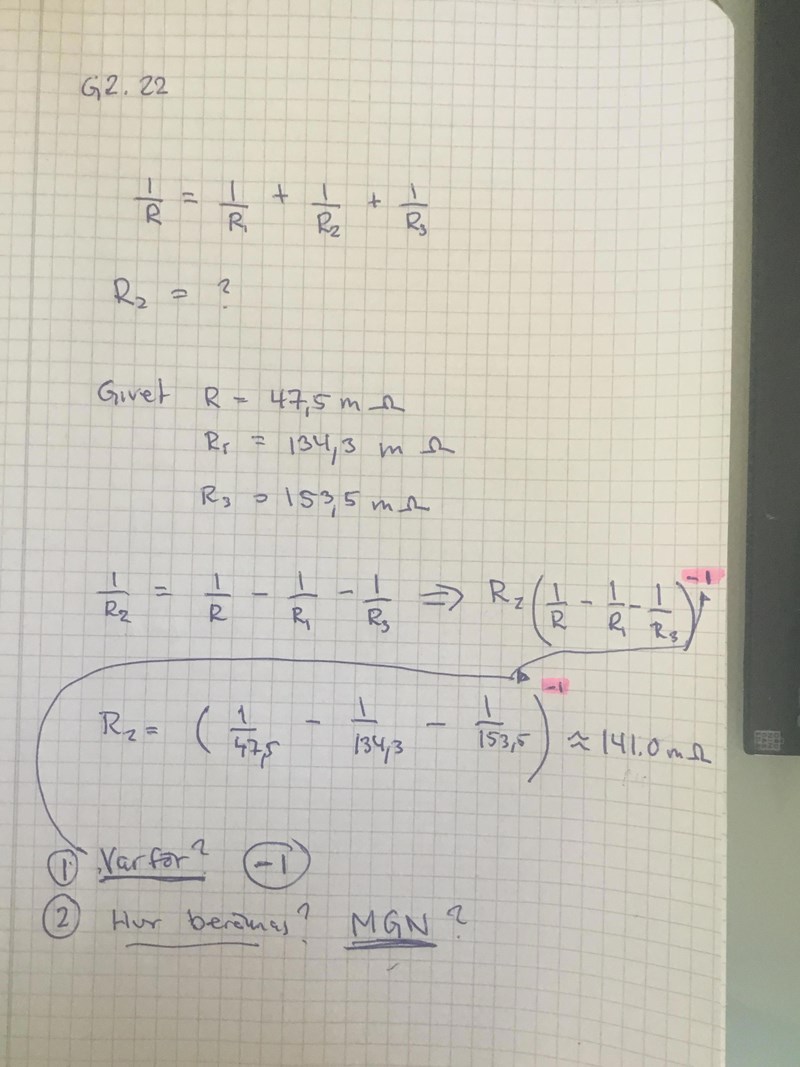 G2.22
1/R = 1/R₁ + 1/R₂ + 1/R₃
R₂ = ?
Givet R = 47,5 m Ω
R₁ = 134,3 m Ω
R₃ = 153,5 m Ω
1/R₂ = 1/R - 1/R₁ - 1/R₃ ⇒ R₂ (1/R - 1/R₁ - 1/R₃)⁻¹
R₂ = (1/47,5 - 1/134,3 - 1/153,5)⁻¹ ≈ 141.0 m Ω
① Varför? (-1)
② Hur beräknas? MGN?